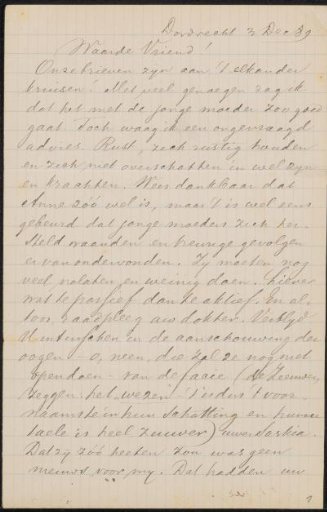 Dordrecht 3 Dec 89
Waarde Vriend!
Onze brieven zyn aan 't elkander
kruisen. Met veel genoegen zag ik
dat het met de jonge moeder zoo goed
gaat. Toch waag ik een ongevraagd
advies. Rust, zich rustig houden
en zich niet overschatten in wel zyn
en krachten. Wees dankbaar dat
Anne zóó wel is, maar 't is wel eens
gebeurd dat jonge moeders zich her-
steld waanden en treurige gevolgen
er van ondervonden. Zy moeten nog
veel nalaten en weinig doen. Liever
wat te passief dan te aktief. En al-
toos raadpleeg uw dokter. Verblyd
U intusschen in de aanschouwing der
oogen - o, neen, die zal ze nog niet
opendoen - van de faace (De Zeeuwen
zeggen het wezen 't is dus 't voor-
naamste in hun schatting en hunne
taele is heel zuwer) uwer Saskia.
Dat zy zóó heeten zou was geen
nieuws voor my. Dat hadden uw